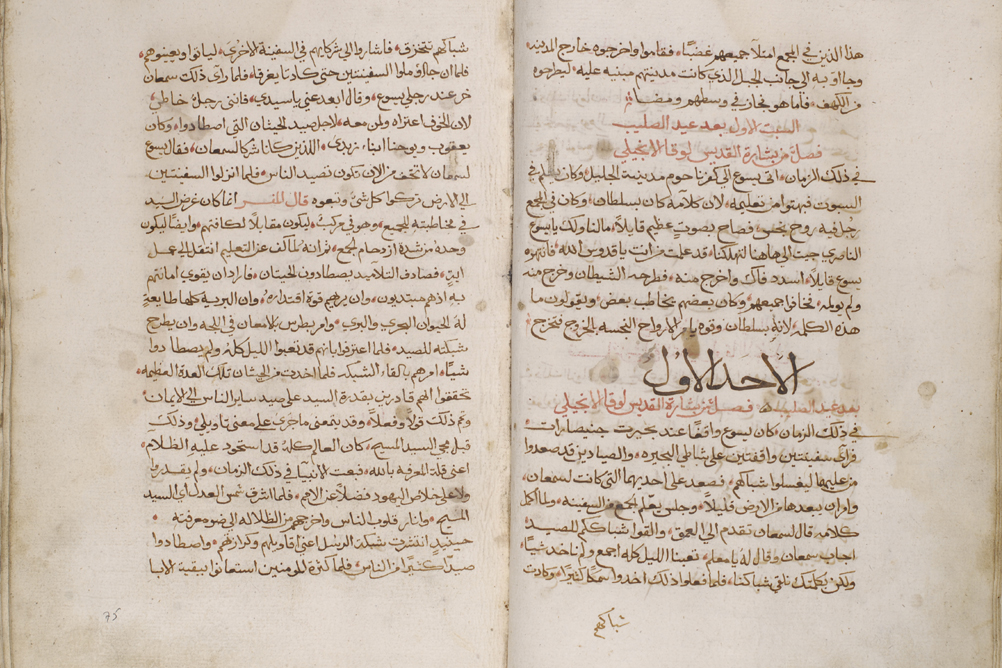 هذا الذين في المجمع امتلا جميعهم غضبًا، فقاموا واخرجوه خارج المدينه
وجاؤا به الى جانب الجبل الذي كانت مدينتهم مبنيه عليه، ليطرحوه
من الكهف، فاما هو فجاز في وسطهم ومضا
السبت الاول بعد عيد الصليب
فصل من بشارة القديس لوقا الانجيلي
في ذلك الزمان، اتى يسوع الى كفرناحوم مدينة الجليل وكان يعلم في
السبوت فبهتوا من تعليمه، لان كلامه كان بسلطان، وكان في المجمع
رجل فيه روح نجس، فصاح بصوت عظيم قايلاً، مالنا ولك يا يسوع
الناصري جيت الى هاهنا لتهلكنا، قد علمت من انت يا قدوس الله، فانتهره
يسوع قايلاً، اسدد فاك واخرج منه، فطرحه الشيطان وخرج منه
ولم يولمه، فخافوا جميعهم، وكان بعضهم يخاطب بعض، ويقولون ما
هذه الكلمه لانه بسلطان وقوه يامر الارواح النجسه بالخروج فتخرج
الاحد الاول
بعد عيد الصليب فصل من بشارة القديس لوقا الانجيلي
في ذلك الزمان، كان يسوع واقفًا عند بحيرت جنيصارات
فراى سفينتين واقفتين على شاطي البحيره، والصيادين قد صعدوا
من عليها ليغسلوا شباكهم، فصعد على احديهما التي كانت لسمعان،
وامر ان يبعدها من الارض قليلاً، وجلس يعلم الجمع من السفينه، ولما اكمل
كلامه قال لسمعان تقدم الى العمق، والقوا شباككم للصيد،
اجاب سمعان وقال له يا معلم، تعبنا الليل كله اجمع ولم ناخد شياً،
ولكن بكلمتك نلقي شباكنا، فلما فعلوا ذلك اخدوا سمكًا كثيرًا، وكادت
شباكهم
شباكهم تتخرق، فاشاروا الى شركايهم في السفينة الاخرى، لياتوا ويعينوهم
فلما ان جاؤا وملوا السفينتين حتى كادتا يغرقا، فلما راى ذلك سمعان
خر عند رجلي يسوع، وقال ابعد عني يا سيدي، فانني رجل خاطي،
لان الخوف اعتراه ولمن معه، لاجل صيد الحيتان التي اصطادوا، وكان
يعقوب ويوحنا ابنا زبدى، اللذين كانا شركا لسمعان، فقال يسوع
لسمعان لا تخف من الان تكون تصيد الناس، فلما انزلوا السفينتين
الى الارض تركوا كل شي وتبعوه قال المفسر انما كان غرض السيد
في مخاطبته للجميع، وهو في مركب، ليكون مقابلاً لكافتهم، وايضًا ليكون
وحده من شدة ازدحام الجمع، ثم انه لما كف عن التعليم انتقل الى عمل
فصادف التلاميد يصطادون الحيتان، فاراد ان يقوي امانتهم
به اذ هم مبتديون، وان يريهم قوة اقتداره، وان البرية كلها طايعة
له الحيوان البحري والبري، وامر بطرس بالامعان في اللجه وان يطرح
شبكته للصيد، فلما اعترفوا بانهم قد تعبوا الليل كله، ولم يصطادوا
شياً، امرهم بالقاء الشبكه، فلما اخدت من الحيتان تلك العدة العظيمه،
تحققوا انهم قادرين بقدرة السيد على صيد ساير الناس الى الايمان،
وتم ذلك قولاً وفعلاً، وقد بنمعنى ما جرى على معنى تاويلي، ودلك
قبل مجي السيد المسيح، كان العالم كله قد استحود عليه الظلام،
اعني قلة المعرفه بالله، فبعت الانبيا في ذلك الزمان، ولم يقدروا
ولا على خلاص اليهود فضلاً عن الامم، فلما اشرق شمس العدل اي السيد
المسيح، وانار قلوب الناس، واخرجهم من الظلاله الى ضو معرفته
حينيدٍ انتشرت شبكة الرسل اعني اقاويلهم وكرازتهم، واصطادوا
صيدًا كثيرًا من الناس، فلما كثرة المومنين استعانوا ببقية الابا
75